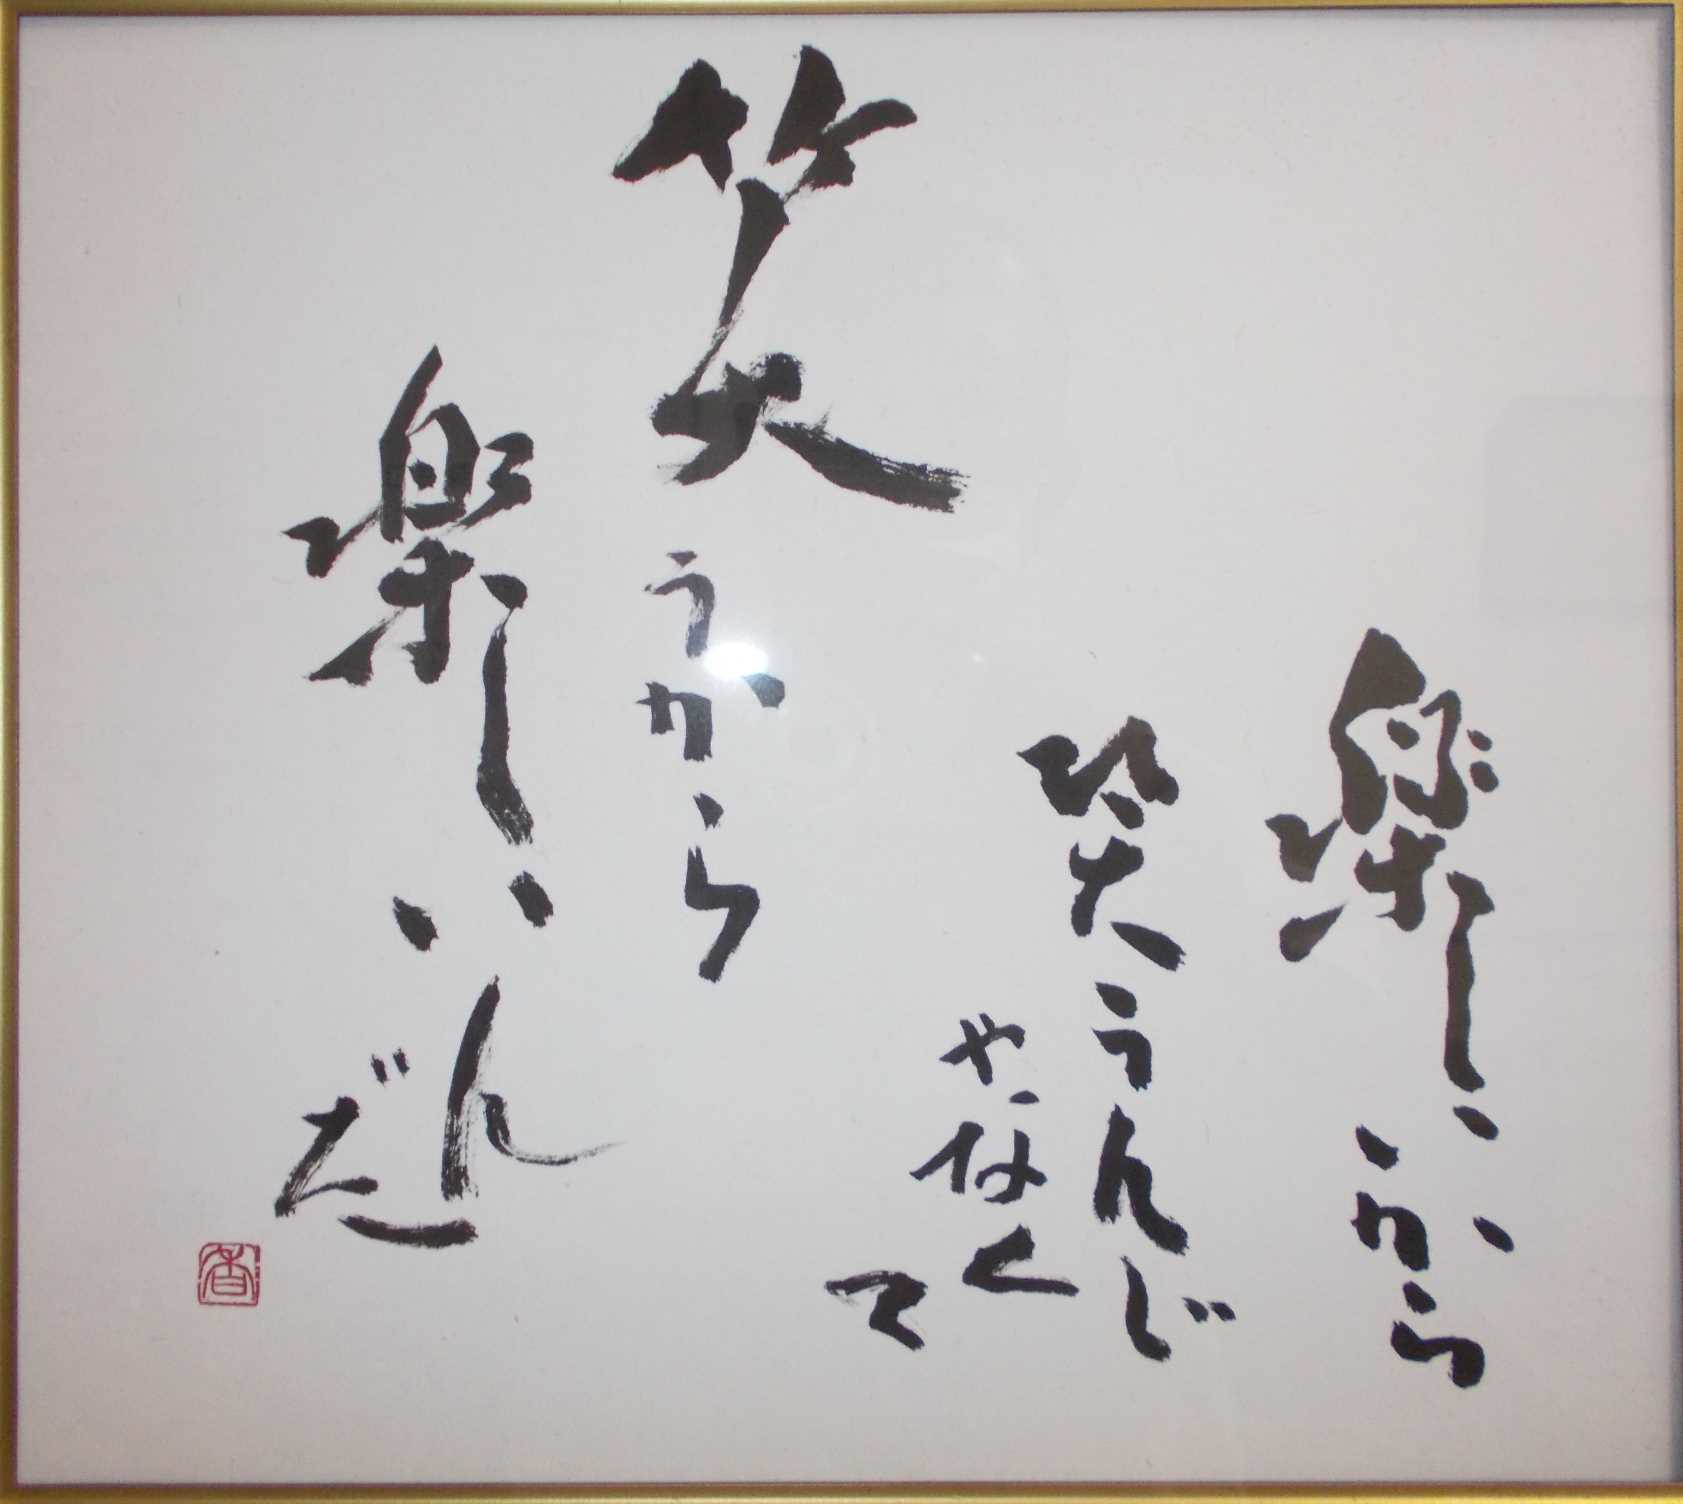 楽しいから
笑うんじ
ゃなく
て
笑うから
楽しいん
だ
香